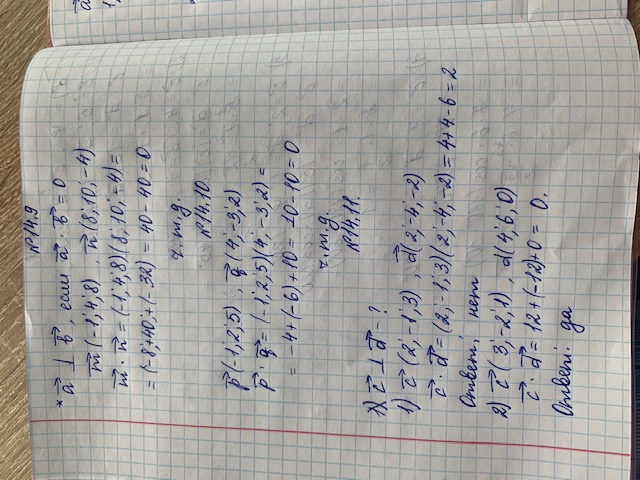 №14.9
* a⃗ ⊥ b⃗, если a⃗ · b⃗ = 0
m⃗ (-1; 4; 8) n⃗ (8; 10; -4)
m⃗ · n⃗ = (-1; 4; 8)(8; 10; -4) =
= (-8+40+(-32) = 40 - 40 = 0
ч.т.д.
№14.10
p⃗(-1; 2; 5), q⃗(4; -3; 2)
p⃗ · q⃗ = (-1; 2; 5)(4; -3; 2) =
= -4+(-6)+10 = 10-10 = 0
ч.т.д.
№14.11.
c⃗ ⊥ d⃗ - ?
1) c⃗ (2; -1; 3) d⃗(2; -4; -2)
c⃗ · d⃗ = (2; -1; 3)(2; -4; -2) = 4+4-6 = 2
Ответ: нет
2) c⃗ (3; -2; 1), d⃗(4; 6; 0)
c⃗ · d⃗ = 12+(-12)+0 = 0.
Ответ: да